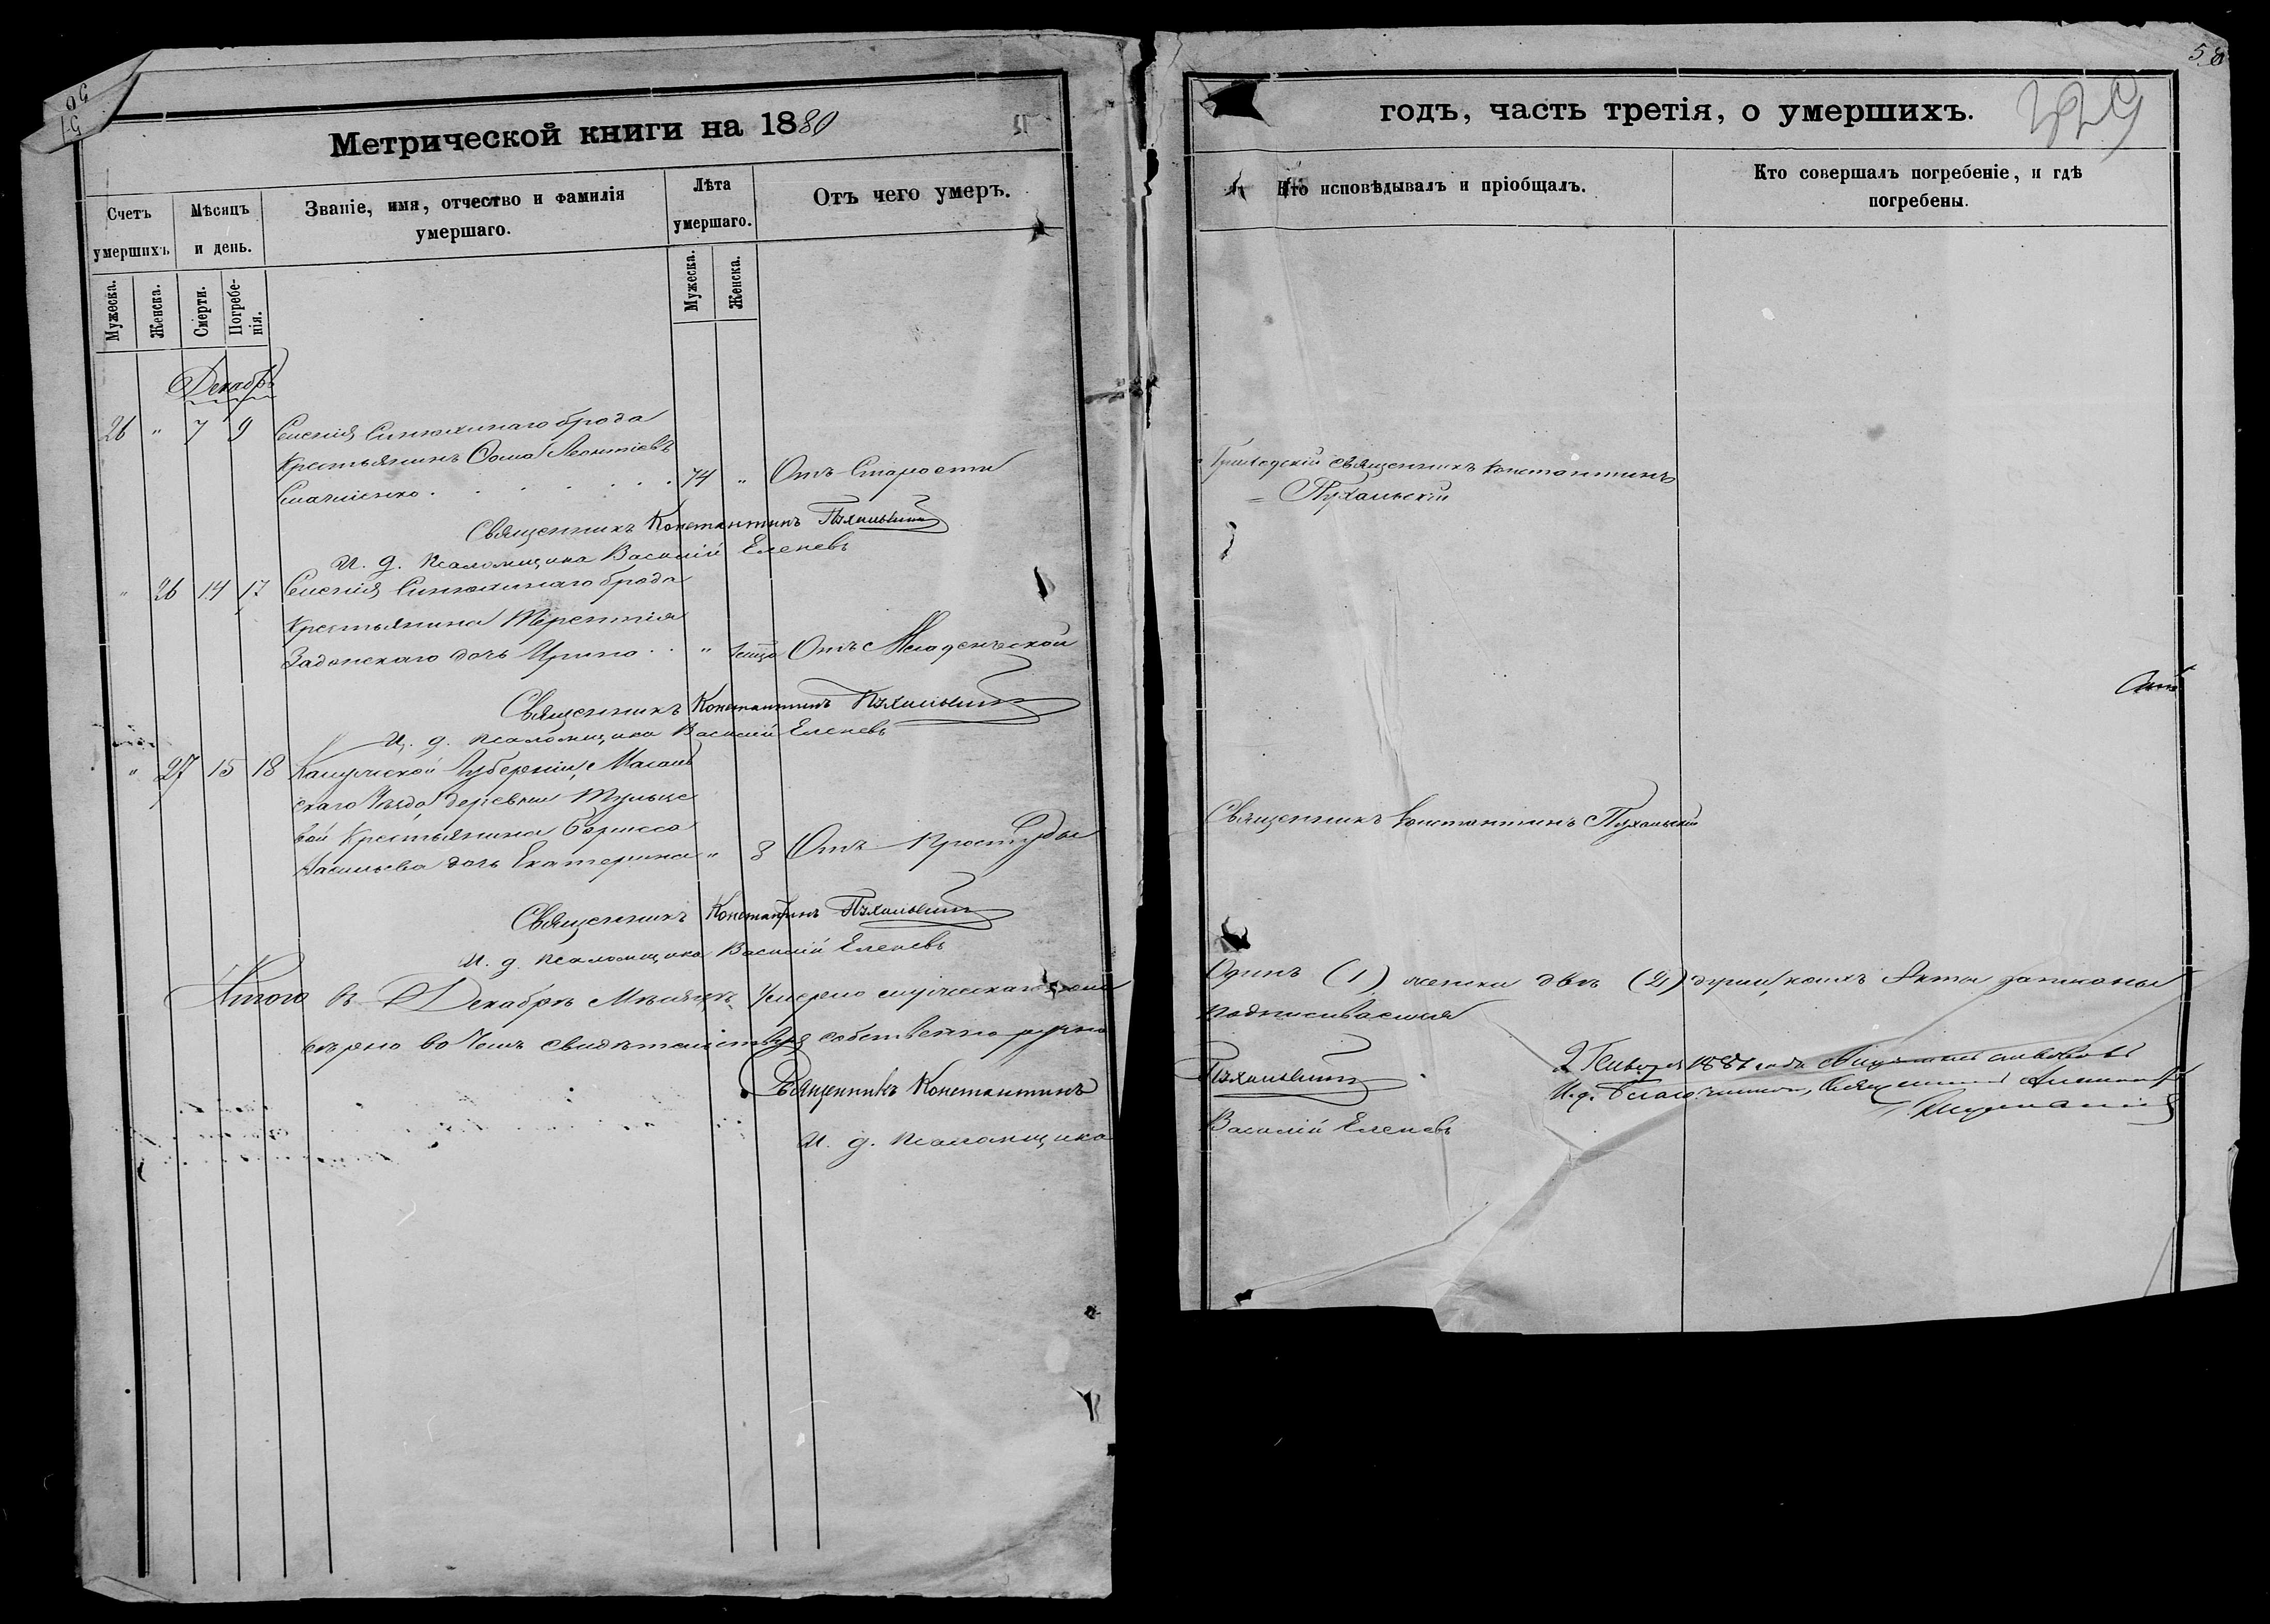 58
Метрической книги на 1880
годъ, часть третія, о умершихъ.
Счетъ умершихъ.
Мѣсяцъ и день.
Званіе, имя, отчество и фамилія умершаго.
Лѣта умершаго.
Отъ чего умеръ.
Кто исповѣдывалъ и пріобщалъ.
Кто совершалъ погребеніе, и гдѣ погребены.
Мужеска.
Женска.
Смерти.
Погребенія.
Мужеска.
Женска.
Декабрь
26 " 7 9 Селенія Синюхинаго брода
Крестьянинъ Ѳома Леонтіевъ
74 " Отъ Старости
Приходскій священникъ Константинъ
Пухальскій
Священникъ Константинъ Пухальскій
И. д. Псаломщика Василій Еленевъ
" 26 14 17 Селенія Синюхинаго брода
Крестьянина Терентія
Задонскаго дочь Ирина " Отъ Младенческой
Священникъ Константинъ Пухальскій
И. д. Псаломщика Василій Еленевъ
" 27 15 18 Калужской Губерніи,
скаго Уѣзда, деревни
вой Крестьянина Бориса
Васильева дочь Екатерина " 8 Отъ Простуды
Священникъ Константинъ Пухальскій
Священникъ Константинъ Пухальскій
И. д. Псаломщика Василій Еленевъ
Итого въ Декабрѣ Мѣсяцѣ Умерло мужескаго пола
Одинъ (1) женска двѣ (2) души, коихъ Акты записаны
вѣрно во Чемъ свидѣтельствуя собственно ручно
подписываемся
Священникъ Константинъ
Пухальскій
И. д. Псаломщика
Василій Еленевъ
2 Января 1881 года
И. д. Благочиннаго, Священникъ